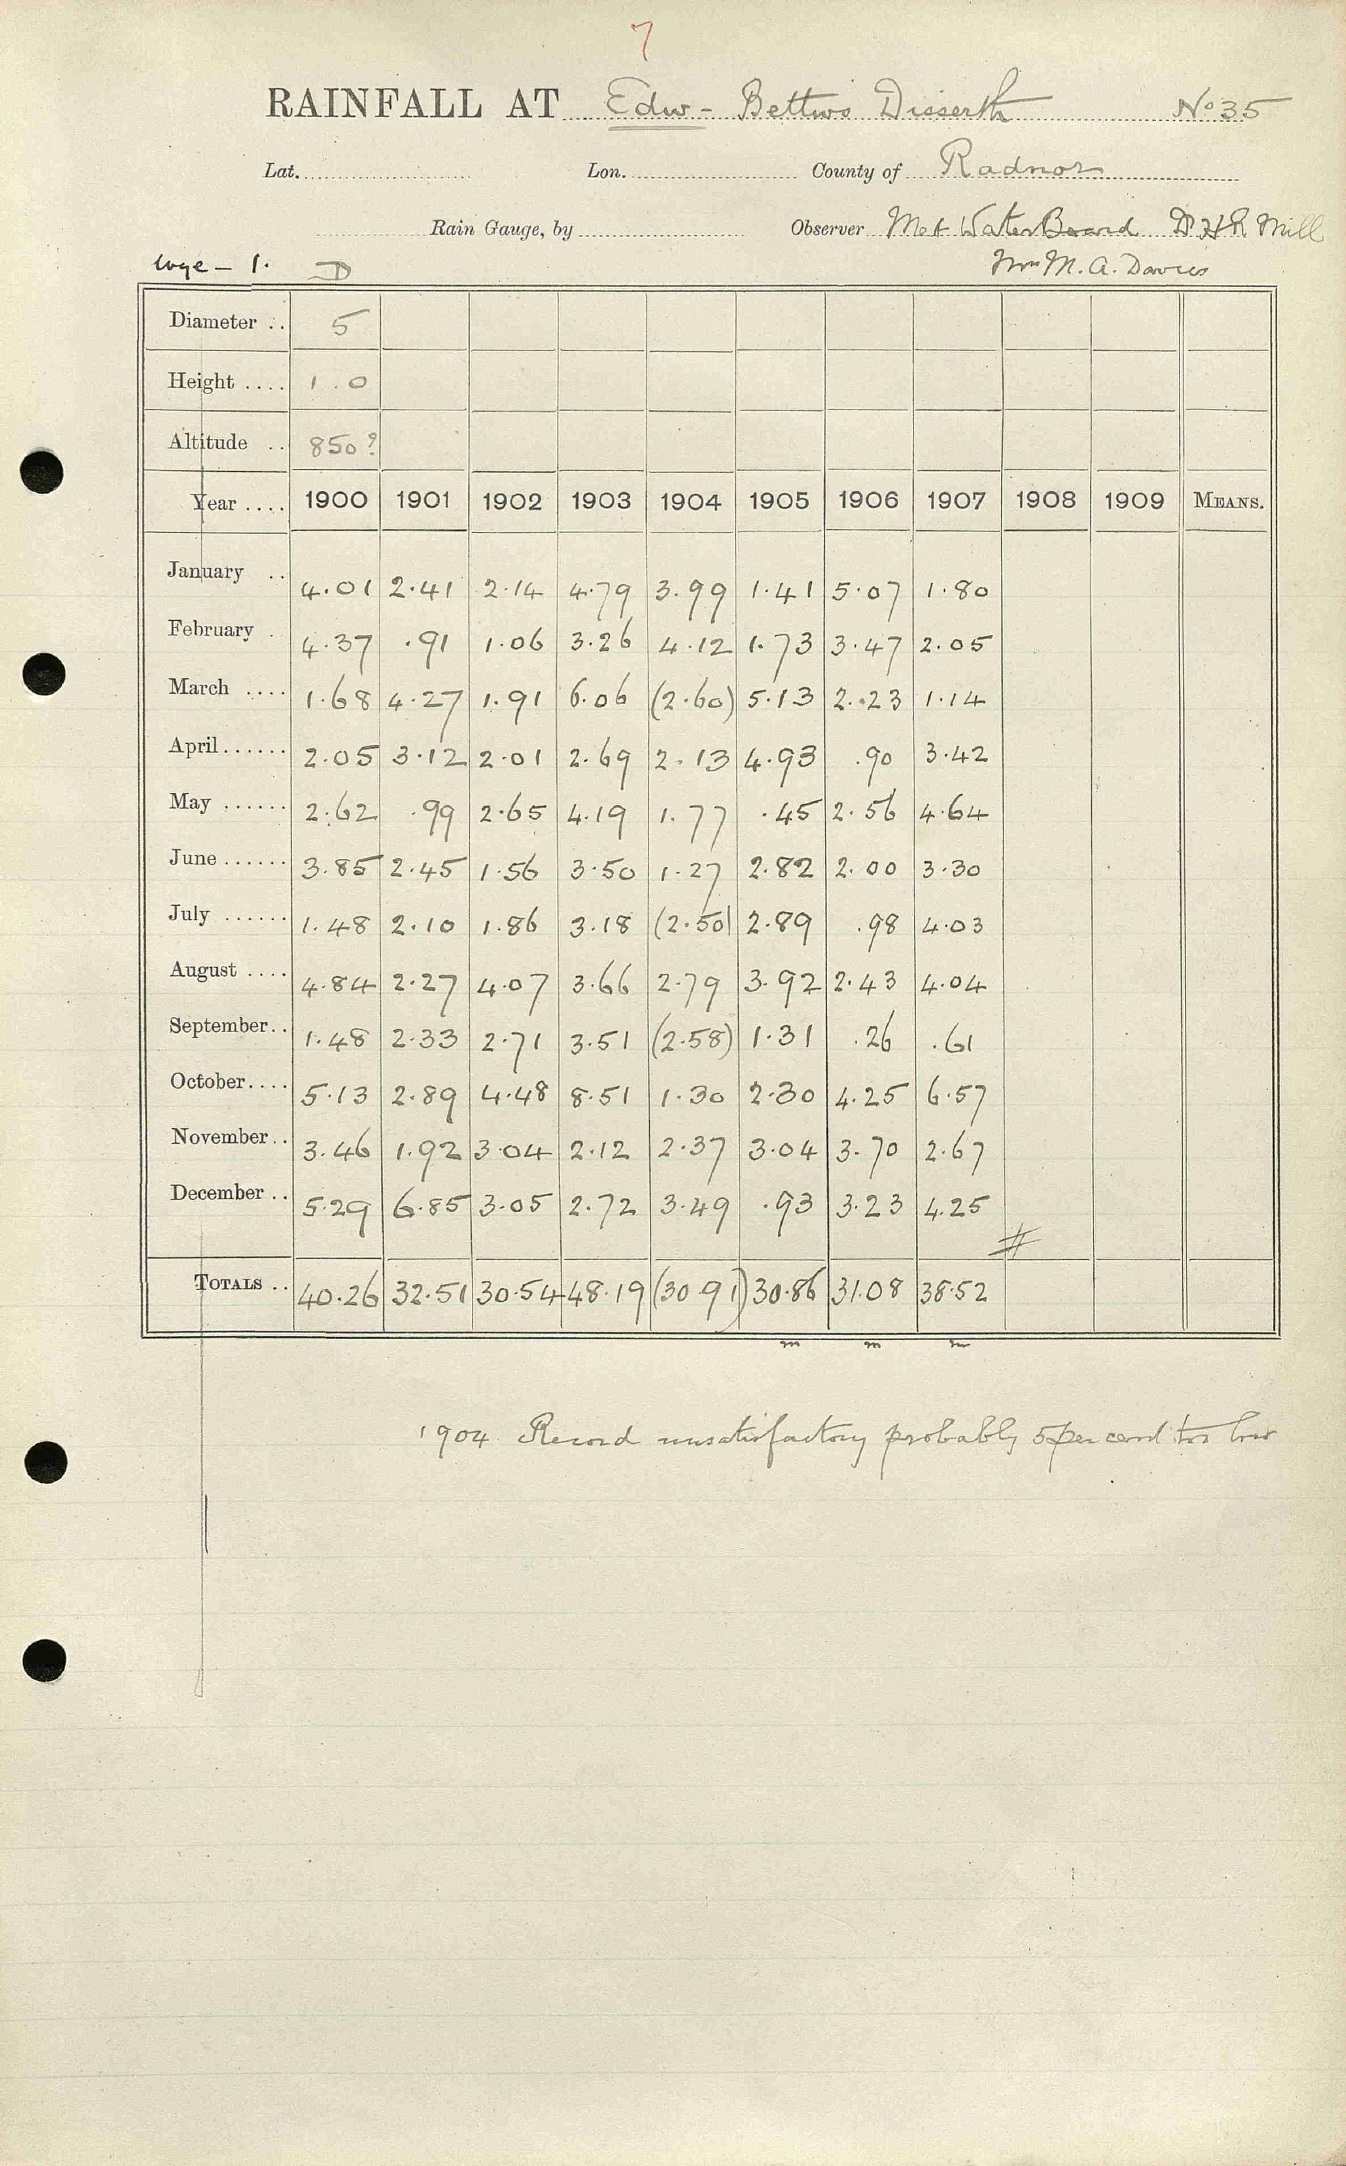 7
RAINFALL AT Edw - Bettws Disserth No 35
Lat. Lon. County of Radnor
Rain Gauge, by Observer Met Water Board Dr H R Mill
Wye - 1. D Mrs M. A. Davies
Diameter .. 5
Height .... 1.0
Altitude .. 850?
Year .... 1900 1901 1902 1903 1904 1905 1906 1907 1908 1909 MEANS.
January .. 4.01 2.41 2.14 4.79 3.99 1.41 5.07 1.80
February . 4.37 .91 1.06 3.26 4.12 1.73 3.47 2.05
March .... 1.68 4.27 1.91 6.06 (2.60) 5.13 2.23 1.14
April ...... 2.05 3.12 2.01 2.69 2.13 4.93 .90 3.42
May ...... 2.62 .99 2.65 4.19 1.77 .45 2.56 4.64
June ...... 3.85 2.45 1.56 3.50 1.27 2.82 2.00 3.30
July ...... 1.48 2.10 1.86 3.18 (2.50) 2.89 .98 4.03
August .... 4.84 2.27 4.07 3.66 2.79 3.92 2.43 4.04
September .. 1.48 2.33 2.71 3.51 (2.58) 1.31 .26 .61
October .... 5.13 2.89 4.48 8.51 1.30 2.30 4.25 6.57
November .. 3.46 1.92 3.04 2.12 2.37 3.04 3.70 2.67
December .. 5.29 6.85 3.05 2.72 3.49 .93 3.23 4.25
TOTALS .. 40.26 32.51 30.54 48.19 (30.91) 30.86 31.08 38.52
m m m
1904 Record unsatisfactory probably 5 per cent too low